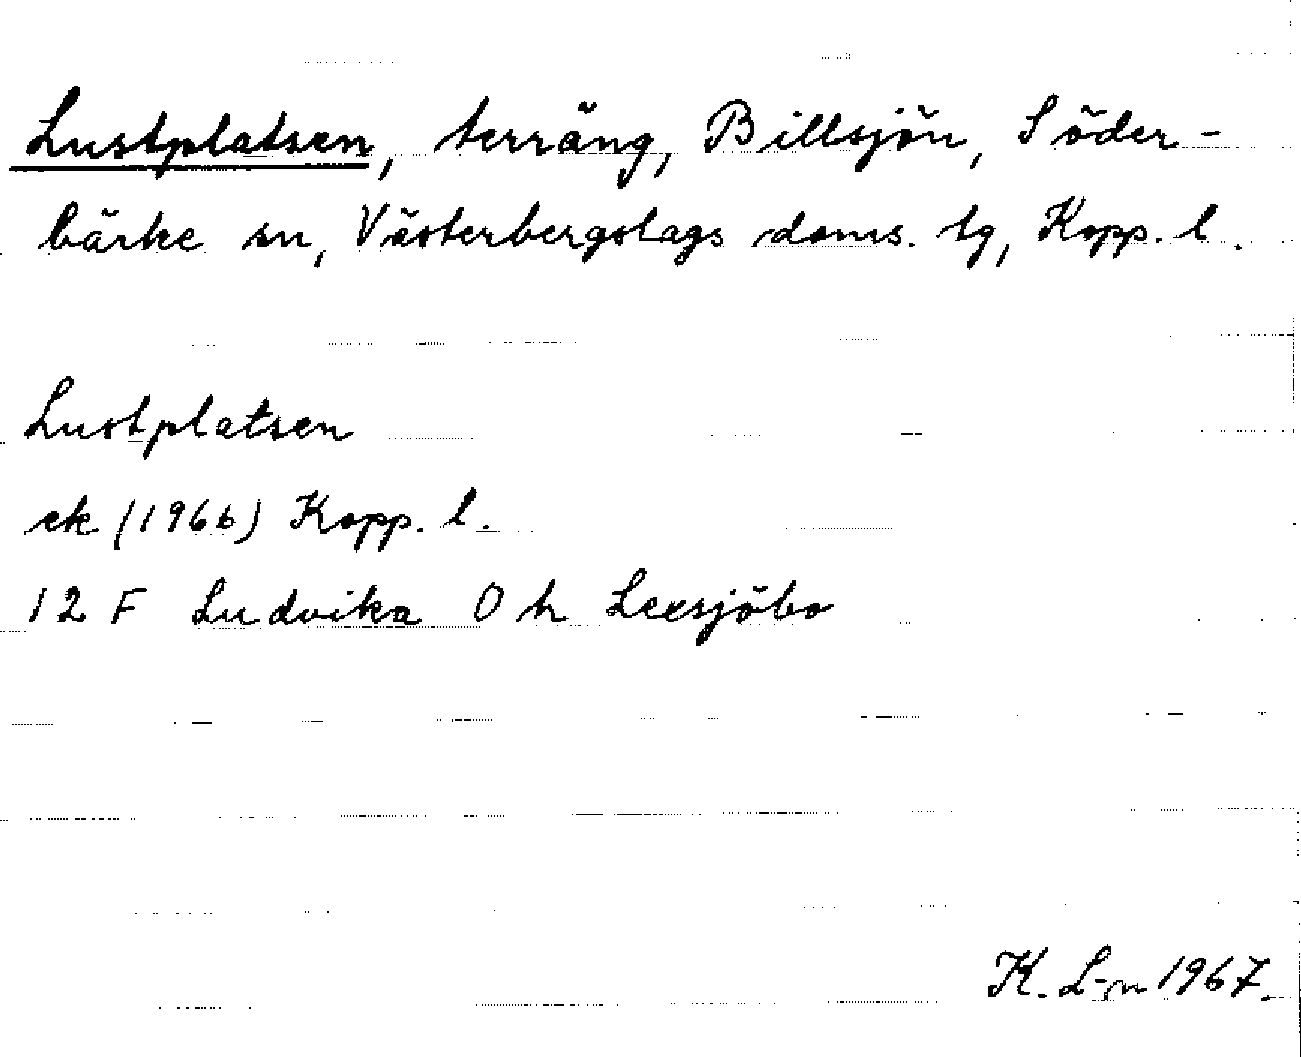 Lustplatsen, terräng, Billsjön, Söder-
bärke sn, Västerbergslags doms. tg, Kopp. l.
Lustplatsen
ek (1966) Kopp. l.
12 F Ludvika 0 h Leexsjöbo
K. L-n 1967.